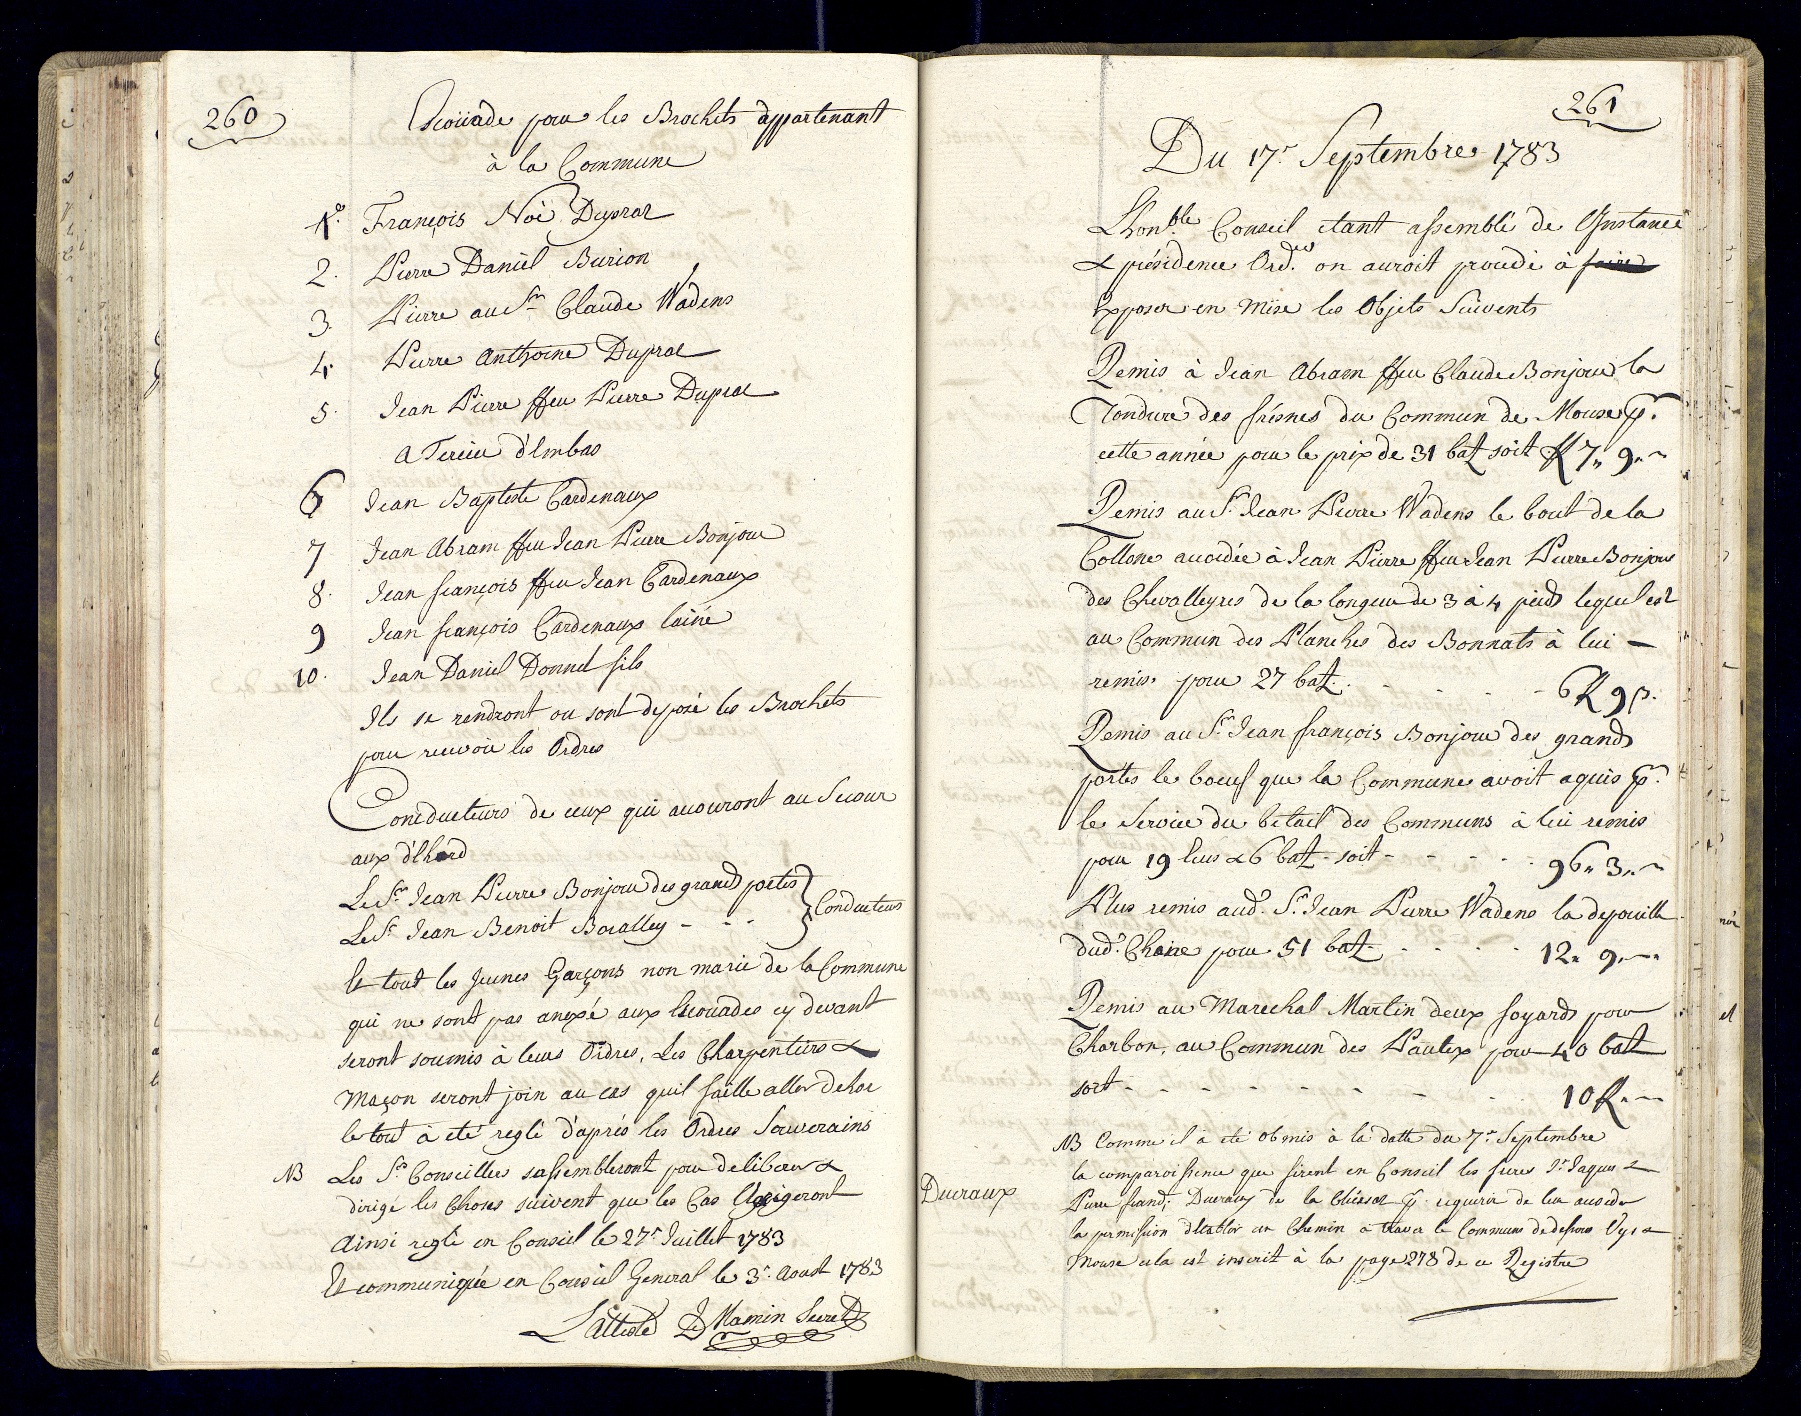 260
Escouade pour les Brochets appartenant
à la Commune
1.o François Noé Duprat
2. Pierre Daniel Burion
3. Pierre au Sr. Claude Wadens
4. Pierre Anthoine Duprat
5. Jean Pierre ffeu Pierre Duprat
A Terein d'Embas
6 Jean Baptiste Cardenaux
7 Jean Abram ffeu Jean Pierre Bonjour
8. Jean françois ffeu Jean Cardenaux
9 Jean françois Cardenaux lainé
10. Jean Daniel Donnel fils
Ils se rendront ou sont deposé les Brochets
pour recevoir les Ordres
Conducteurs de ceux qui accouront au Secour
aux d'Ehord
Le Sr. Jean Pierre Bonjour des grand portes
Le Sr. Jean Benoit Boralley - - -
Conducteurs
Et tout les Jeunes Garçons non marié de la Commune
qui ne sont pas anexé aux Escouades cy devant
seront soumis à leurs Ordres, Les Charpentiers &
Maçon seront join au cas quil faille aller dehor
le tout à eté reglé d'après les Ordres Souverains
NB Les Srs. Conseillers sassembleront pour deliberer &
dirigé les Choses suivent que les Cas Exigeront
Ainsi reglé en Conseil le 27e. Juillet 1783
Et communiquée en Conseil General le 3e. Aoust 1783
L'atteste Mamin Secret.
261
Du 17e. Septembre 1783
Lhonble. Conseil etant assemblé de Instance
& présidence Ordres. on auroit procedé à faire
Exposer en Mise les Objets Suivents
Remis à Jean Abram ffeu Claude Bonjour la
Tondure des frésnes du Commun de Mouse pr.
cette année pour le prix de 31 batz soit ff 7,, 9,,~
Remis au Sr. Jean Pierre Wadens le bout de la
Collone accordée à Jean Pierre ffeu Jean Pierre Bonjour
des Chevalleyres de la longeur de 3 à 4 pieds lequel est
au Commun des Planches des Bonnats à lui -
remis. pour 27 batz. - - - - - 6 ff 9 s.
Remis au Sr. Jean françois Bonjour des grands
portes le boeuf que la Commune avoit aquis pr.
le Service du bétail des Communs à lui remis
pour 19 Ecus & 6 batz - soit - - - - - 96,, 3,,~
Plus remis aud. Sr. Jean Pierre Wadens la depouille
dud. Chaire pour 51 batz - - - - 12,, 9,,~
Remis au Marechal Martin deux foyards pour
Charbon, au Commun des Pautex pour 40 batz
soit - - - - - - - - 10 ff,,~
NB Comme il à eté obmis à la datte du 7e. Septembre
la comparoissence que firent en Conseil les freres Sr. Jaques &
Ducraux
Pierre frand. Ducraux de la Chiesaz pr. requerir de leur accorder
la permission d'Etablir un Chemin à traver le Commun de dessous Vyes &
Mouse cela est inscrit à la page 278 de ce Registre